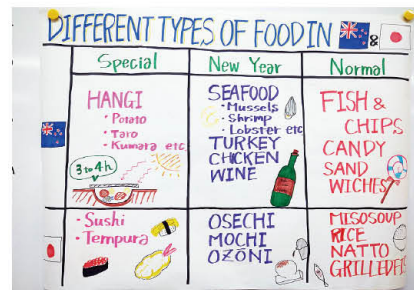 DIFFERENT TYPES OF FOOD IN &
Special
New Year
Normal
HANGI
・Potato
・Taro
・Kumara etc.
3 to 4h
SEAFOOD
・Mussels
・Shrimp
・Lobster etc
TURKEY
CHICKEN
WINE
FISH &
CHIPS
CANDY
SAND
WICHES
・Sushi
・Tempura
OSECHI
MOCHI
OZŌNI
MISOSOUP
RICE
NATTO
GRILLEDFIS